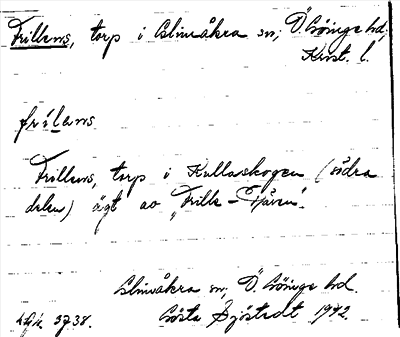 Frillens, torp i Glimåkra sn, Ö. Göinge hd,
Krist. l.
frilens
Frillens, torp i Kullaskogen (södra
delen) ägt av "Frille-Påven".
Glimåkra sn, Ö. Göinge hd.
Gösta Sjöstedt 1942.